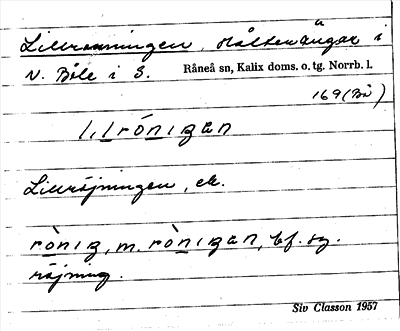 Lillröningen, slåtterängar i
N. Böle i S. Råneå sn, Kalix doms. o. tg. Norrb. l.
169 (Bö)
lịlrǿnıgan
Lillröjningen, ek.
rònıg, m. rònıgan, bf. sg.
röjning.
Siv Classon 1957